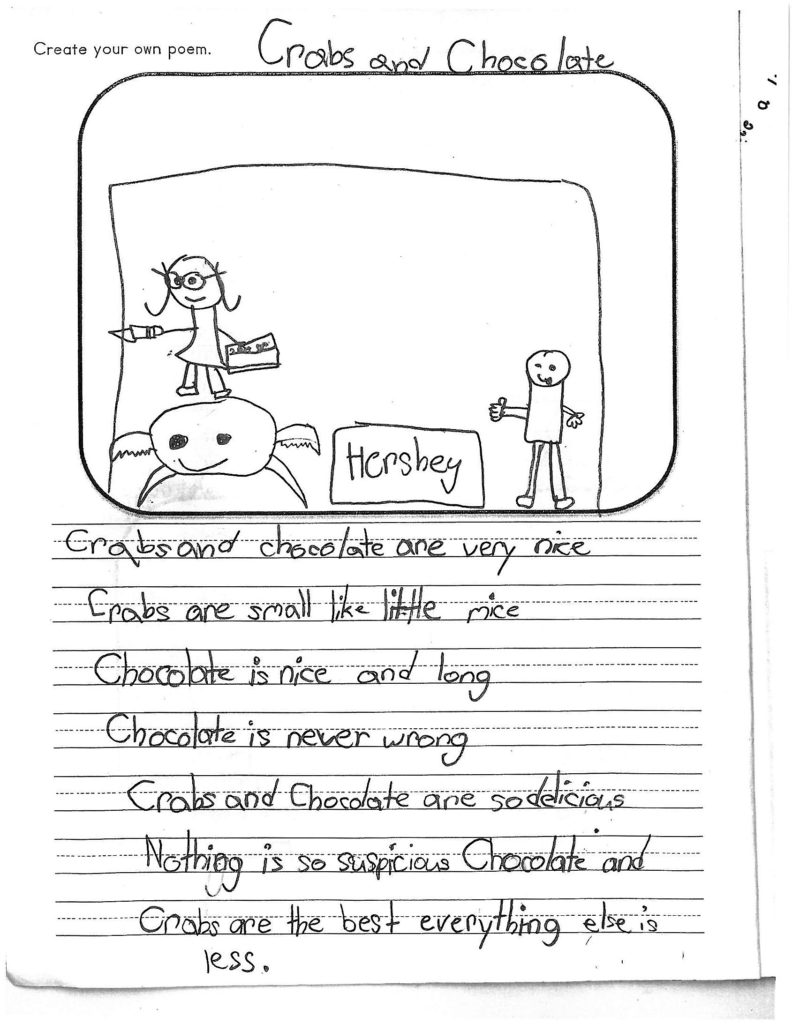 Create your own poem.
Crabs and Chocolate
Hershey
Crabs and chocolate are very nice
Crabs are small like little mice
Chocolate is nice and long
Chocolate is never wrong
Crabs and Chocolate are so delicious
Nothing is so suspicious Chocolate and
Crabs are the best everything else is
less.